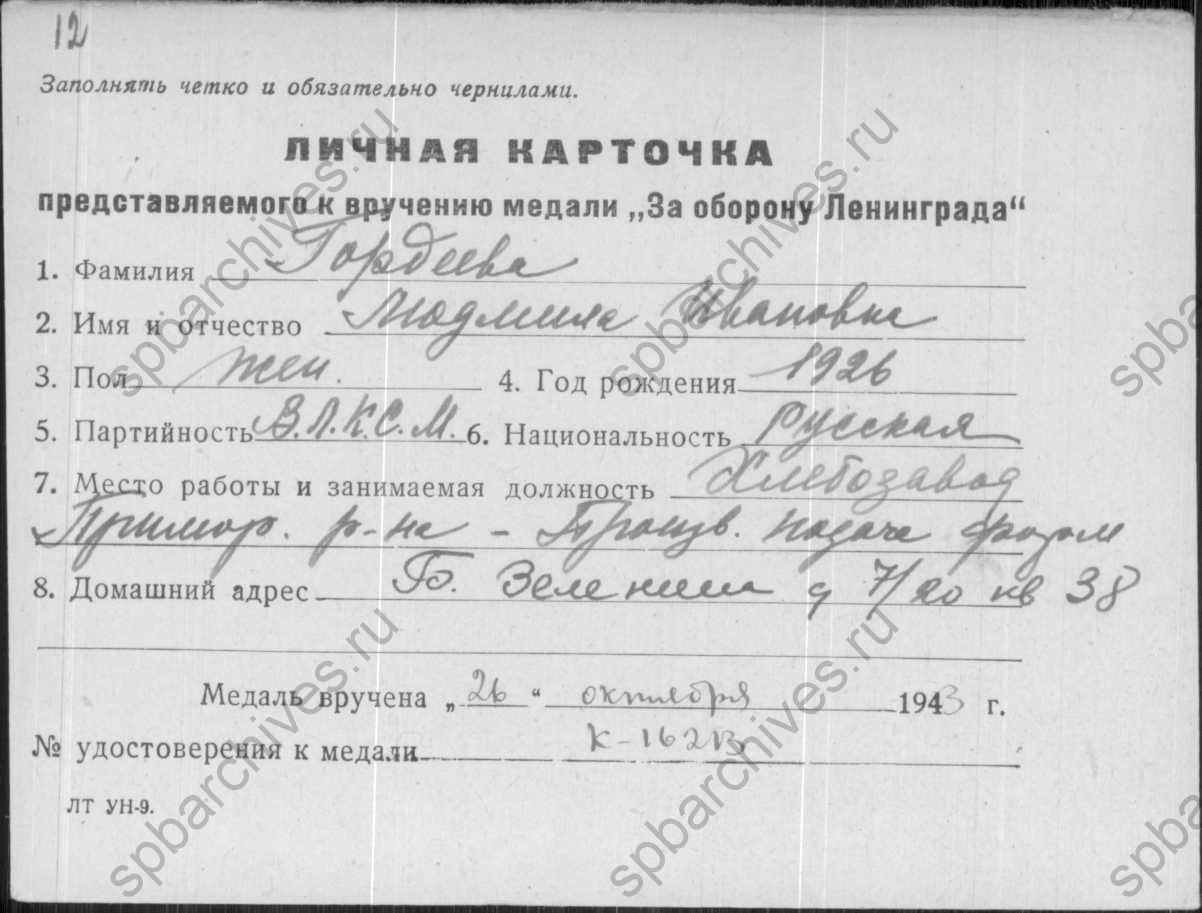 12
Заполнять четко и обязательно чернилами.
ЛИЧНАЯ КАРТОЧКА
представляемого к вручению медали „За оборону Ленинграда“
1. Фамилия Гордеева
2. Имя и отчество Людмила Ивановна
3. Пол жен. 4. Год рождения 1926
5. Партийность В.Л.К.С.М. 6. Национальность русская
7. Место работы и занимаемая должность Хлебозавод
Примор. р-на - Произв. подача форм
8. Домашний адрес Б. Зеленина д 7/20 кв 38
Медаль вручена „26“ октября 1943 г.
№ удостоверения к медали
ЛТ УН-9.
spbarchives.ru
spbarchives.ru
spbarchives.ru
spbarchives.ru